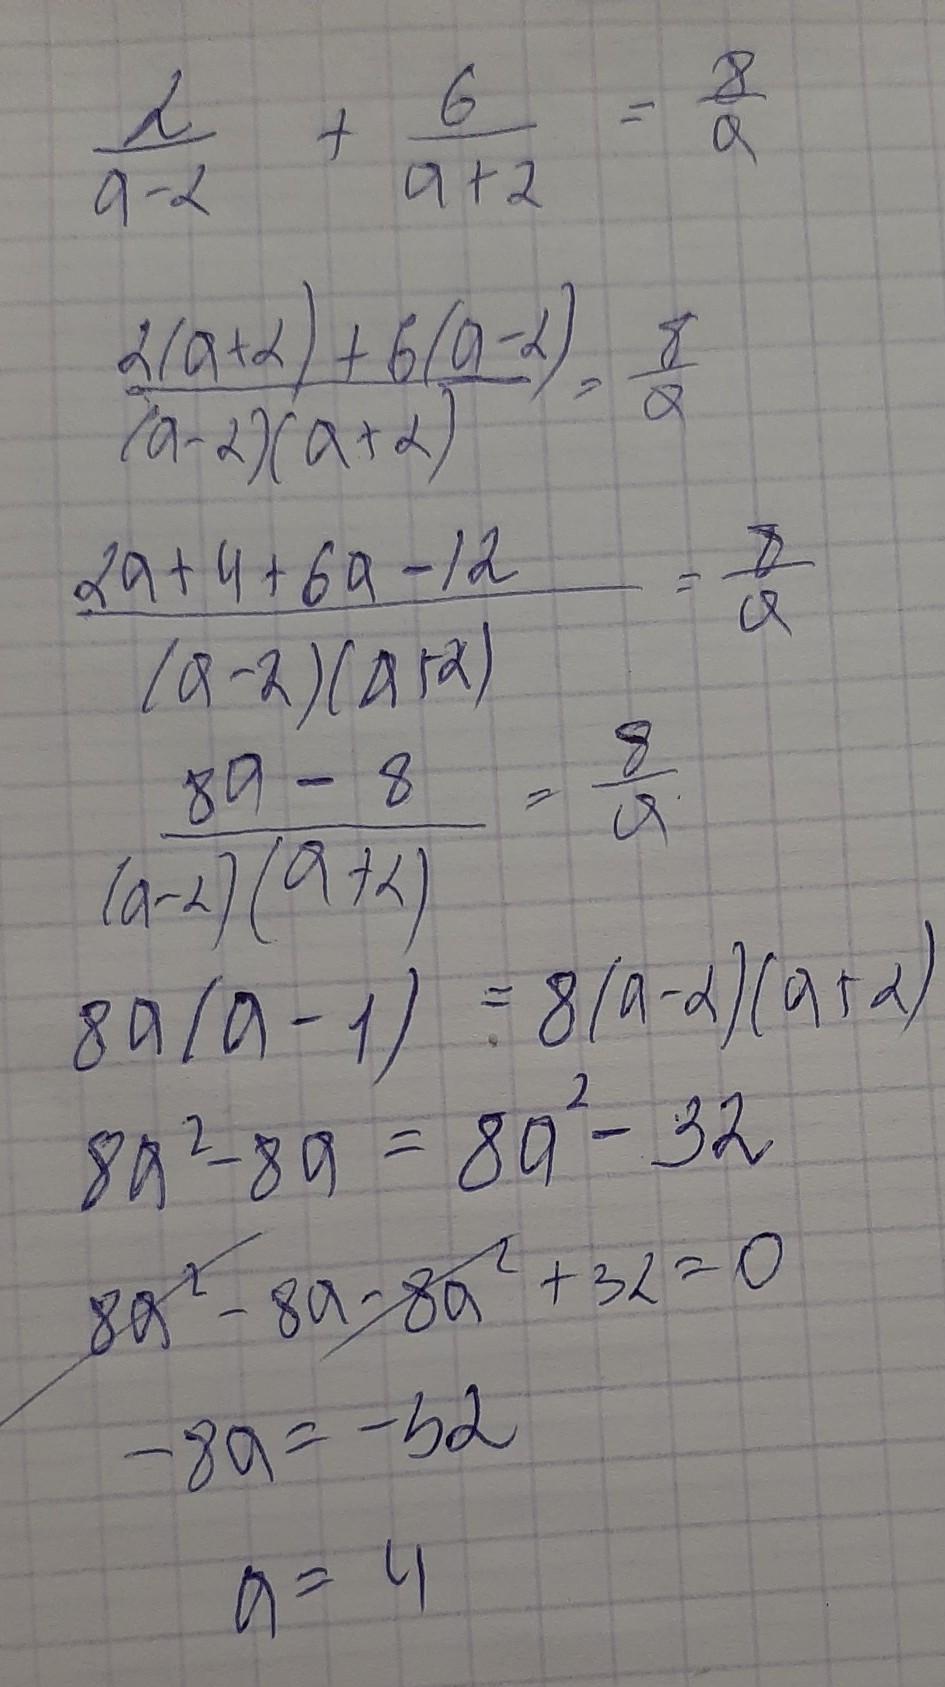 2/(a-2) + 6/(a+2) = 8/a
(2(a+2)+6(a-2))/((a-2)(a+2)) = 8/a
(2a+4+6a-12)/((a-2)(a+2)) = 8/a
(8a-8)/((a-2)(a+2)) = 8/a
8a(a-1) = 8(a-2)(a+2)
8a²-8a = 8a²-32
8a²-8a-8a²+32=0
-8a=-32
a=4